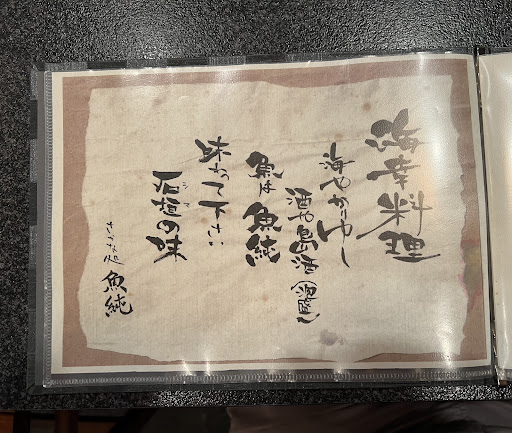 海幸料理
海やかりゆし
酒や島酒(泡盛)
魚は魚純
味わって下さい
石垣の味
シマ
魚純